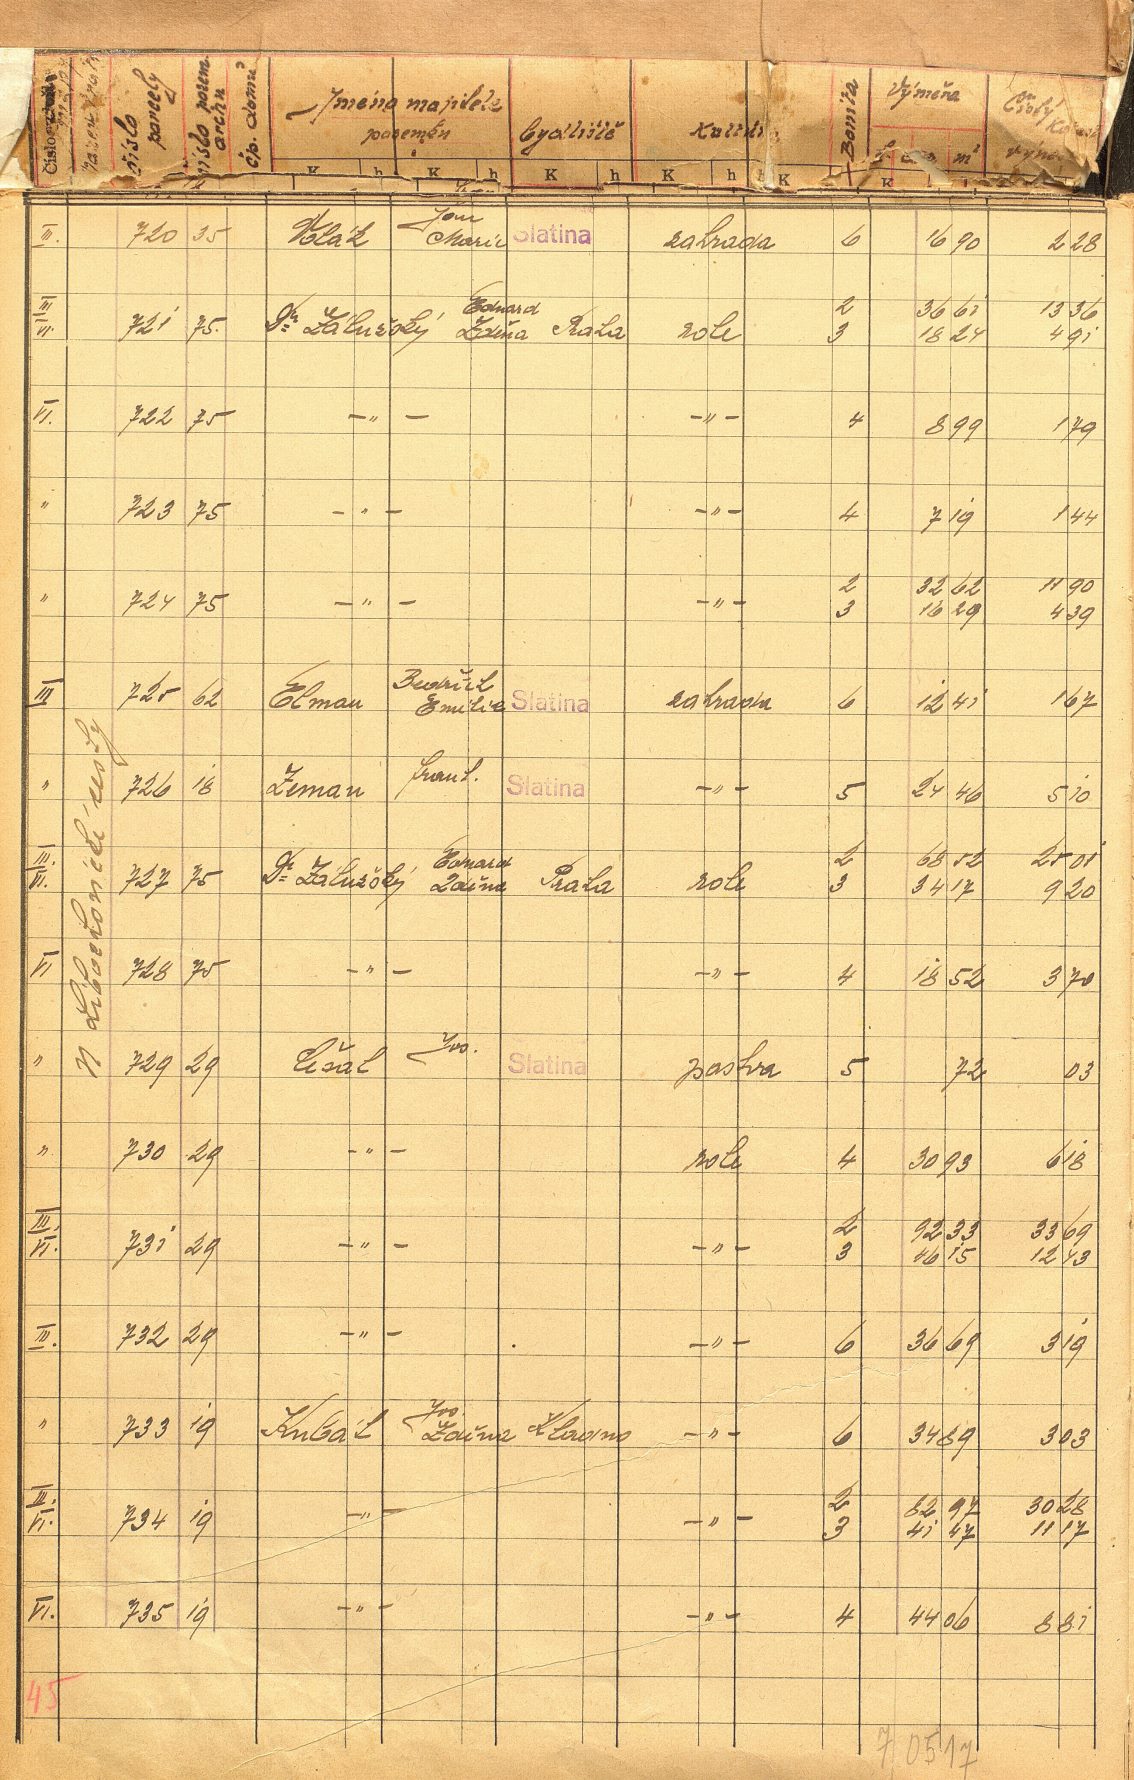 Číslo
číslo parcely
číslo pozem. archu
čp. domu
Jména majitele pozemku
Bydliště
Kultura
Bonita
Výměra
Čistý
K h K h K h K h K K
m²
III. 720 35 Jan Marie Slatina zahrada 6 16 90 2 28
III VI. 721 75 Dr. Zálužský Eduard Zdeňa Praha role 2 36 61 13 36
3 18 24 4 91
VI. 722 75 -„- -„- 4 8 99 1 79
„ 723 75 -„- -„- 4 7 19 1 44
„ 724 75 -„- -„- 2 32 62 11 90
3 16 29 4 39
III 725 62 Elman Bedřich Emilie Slatina zahrada 6 12 41 1 67
„ 726 18 Zeman frant. Slatina -„- 5 24 46 5 10
III. VI. 727 75 Dr. Zálužský Eduard Zdeňa Praha role 2 68 52 25 01
3 34 17 9 20
VI 728 75 -„- -„- 4 18 52 3 70
„ 729 29 Jos. Slatina pastva 5 72 03
„ 730 29 -„- role 4 30 93 6 18
III. VI. 731 29 -„- -„- 2 92 33 33 69
3 46 15 12 43
III. 732 29 -„- -„- 6 36 69 3 19
„ 733 19 Kubát Jos. Zdeňa Kladno -„- 6 34 89 3 03
III. VI. 734 19 -„- -„- 2 82 97 30 28
3 41 47 11 17
VI. 735 19 -„- -„- 4 44 06 8 81
45
7 05 17